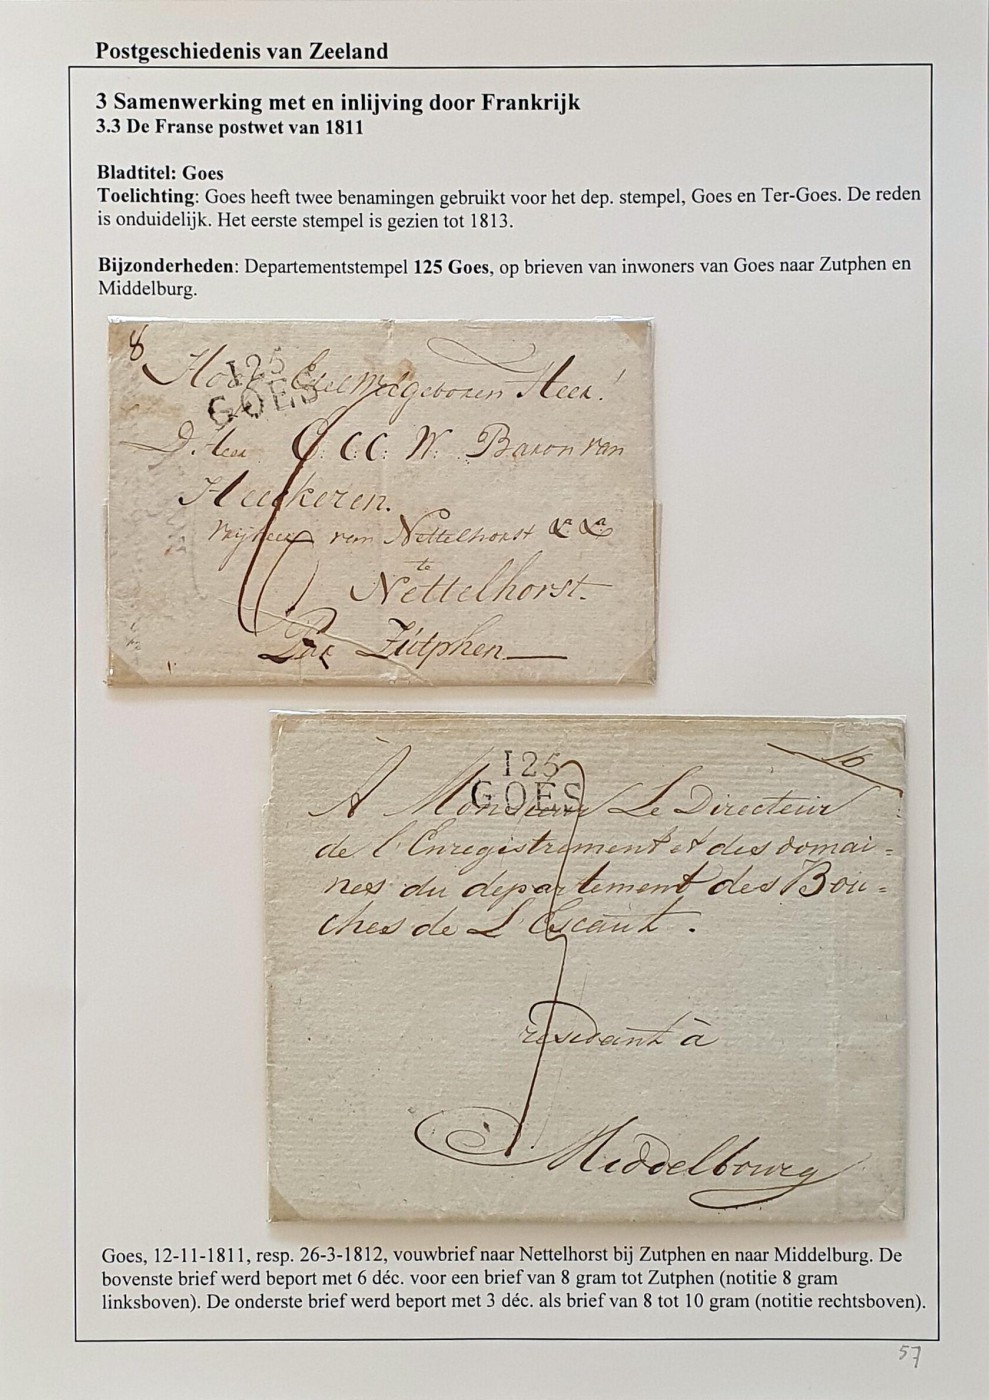 Postgeschiedenis van Zeeland
3 Samenwerking met en inlijving door Frankrijk
3.3 De Franse postwet van 1811
Bladtitel: Goes
Toelichting: Goes heeft twee benamingen gebruikt voor het dep. stempel, Goes en Ter-Goes. De reden
is onduidelijk. Het eerste stempel is gezien tot 1813.
Bijzonderheden: Departementstempel 125 Goes, op brieven van inwoners van Goes naar Zutphen en
Middelburg.
8
125
GOES
Heer!
C: C: W: Baron van
Heeckeren.
van Nettelhorst
te
Nettelhorst.
Zútphen
125
GOES
16
À Monsieur Le Directeur
de l'Enregistrement et des domai=
nes du departement des Bou=
ches de L'Escaut.
residant à
Middelbourg
Goes, 12-11-1811, resp. 26-3-1812, vouwbrief naar Nettelhorst bij Zutphen en naar Middelburg. De
bovenste brief werd beport met 6 déc. voor een brief van 8 gram tot Zutphen (notitie 8 gram
linksboven). De onderste brief werd beport met 3 déc. als brief van 8 tot 10 gram (notitie rechtsboven).
57